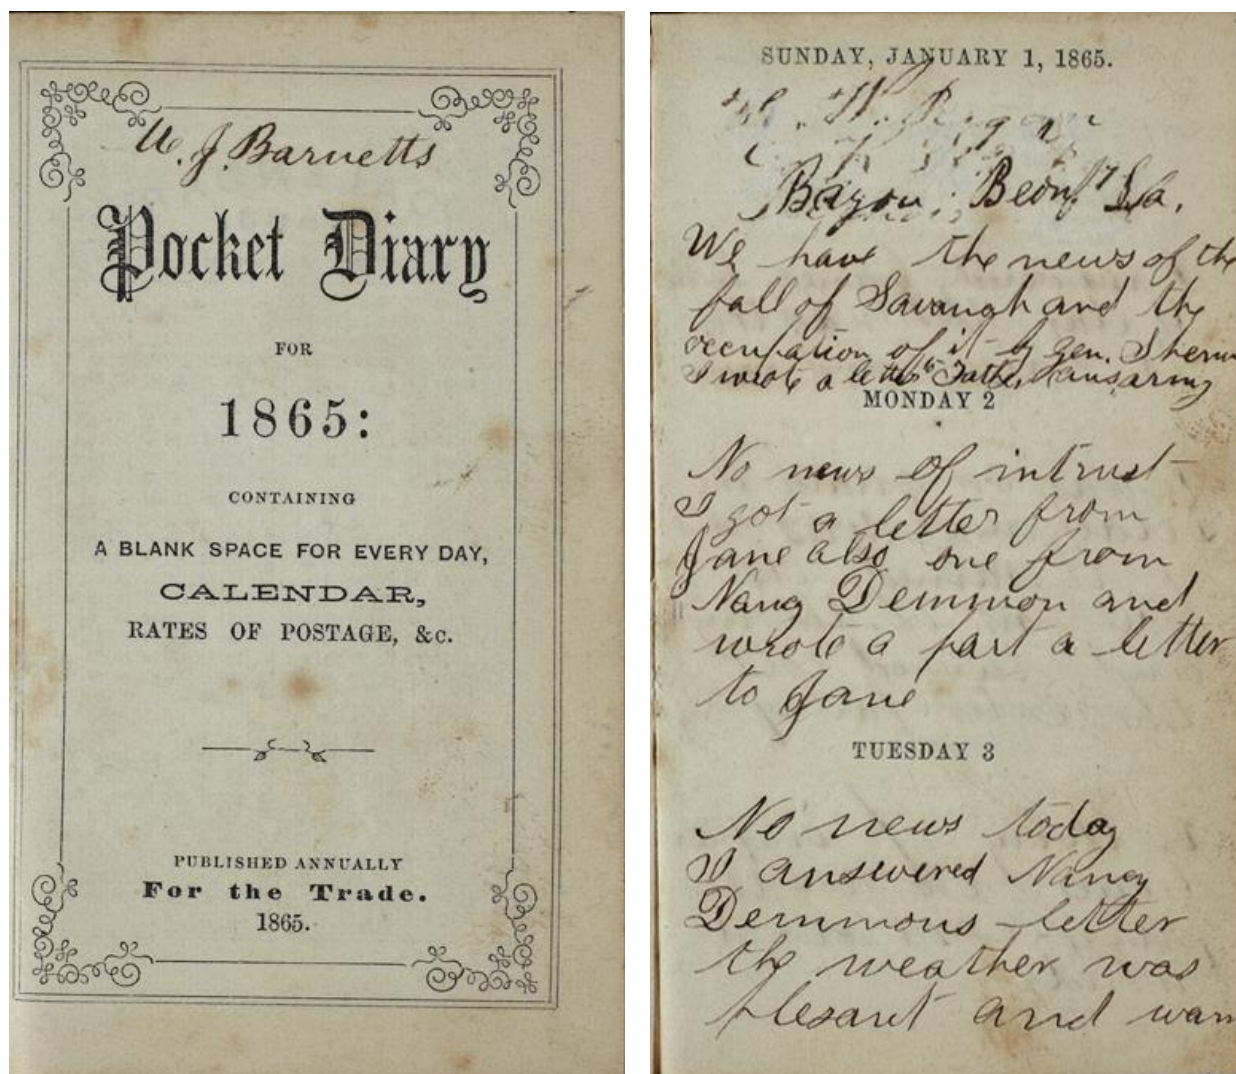 W. J. Barnetts
Pocket Diary
FOR
1865:
CONTAINING
A BLANK SPACE FOR EVERY DAY,
CALENDAR,
RATES OF POSTAGE, &c.
PUBLISHED ANNUALLY
For the Trade.
1865.
SUNDAY, JANUARY 1, 1865.
Bayou Beouf La.
We have the news of the
fall of Savaugh and the
occupation of it by gen. Sherm
I wrote a letter to Father ansaring
MONDAY 2
No news of intrust
I got a letter from
Jane also one from
Nancy Demmon and
wrote a part a letter
to Jane
TUESDAY 3
No news today
I answered Nancy
Demmons letter
the weather was
plesant and warm